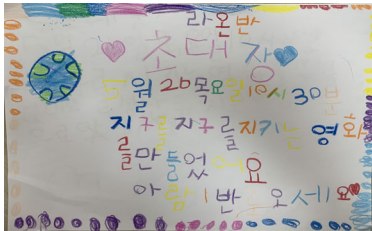 라온반
초대장
월 20목요일 10시 30분
지구를 지구를 지키는 영화
를만들었어요
아람1반 오세요